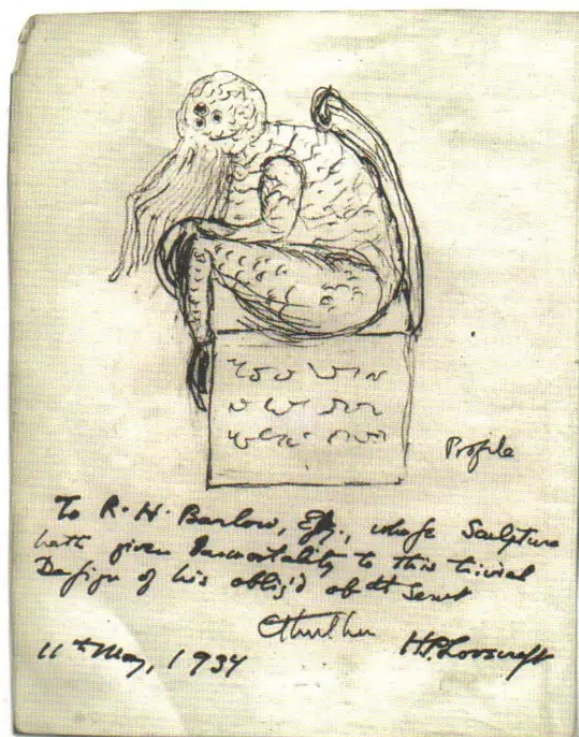 Profile
To R. H. Barlow, Eſq., whoſe Sculpture
hath given Immortality to this trivial
Deſign of his oblig'd obdt Servt
Cthulhu H.P. Lovecraft
11th May, 1934